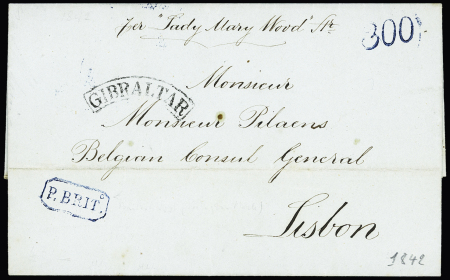 per "Lady Mary Wood" Str
300
GIBRALTAR
Monsieur
Monsieur Pilaens
Belgian Consul General
P. BRIT.
Lisbon
1842